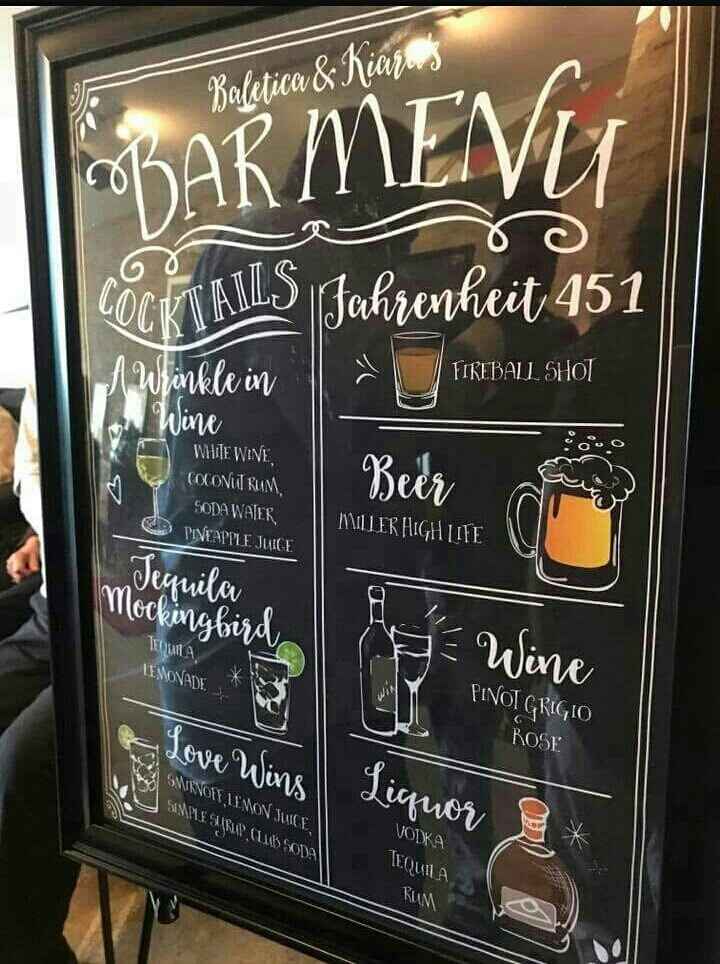 Baletica & Kiara's
BAR MENU
COCKTAILS
A Wrinkle in
Wine
WHITE WINE,
COCONUT RUM,
SODA WATER,
PINEAPPLE JUICE
Tequila
Mockingbird
TEQUILA,
LEMONADE
Love Wins
SMIRNOFF, LEMON JUICE,
SIMPLE SYRUP, CLUB SODA
Fahrenheit 451
FIREBALL SHOT
Beer
MILLER HIGH LIFE
Wine
PINOT GRIGIO
&
ROSE
Liquor
VODKA
TEQUILA
RUM